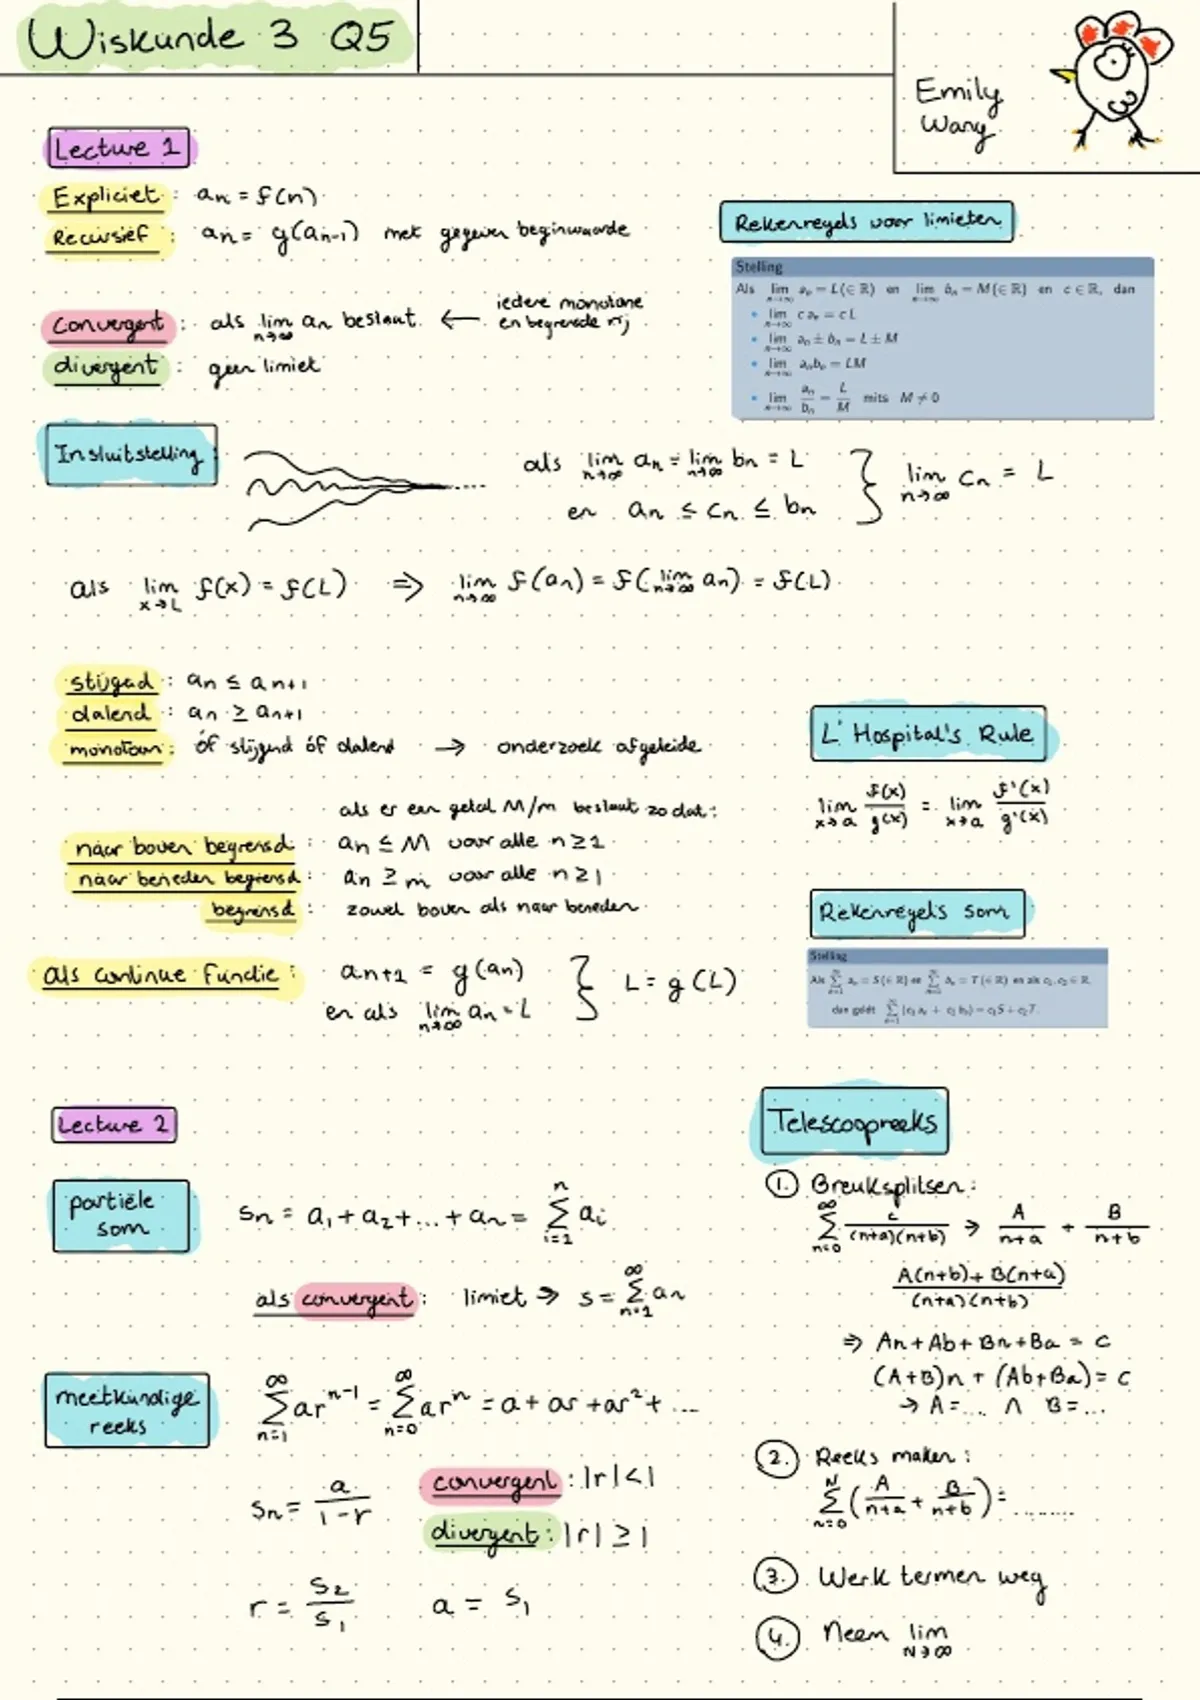 Wiskunde 3 Q5
Emily
Wary
Lecture 1
Expliciet: aₙ = f(n)
Recursief: aₙ = g(aₙ₋₁) met gegeven beginwaarde
Convergent: als lim n→∞ aₙ bestaat. ← iedere monotone
en begrensde rij
divergent: geen limiet
Rekenregels voor limieten
Stelling
Als lim n→∞ aₙ = L(∈ ℝ) en lim n→∞ bₙ = M(∈ ℝ) en c ∈ ℝ, dan
• lim n→∞ c aₙ = c L
• lim n→∞ aₙ ± bₙ = L ± M
• lim n→∞ aₙbₙ = LM
• lim n→∞ aₙ/bₙ = L/M mits M ≠ 0
Insluitstelling:
als lim n→∞ aₙ = lim n→∞ bₙ = L
en aₙ ≤ cₙ ≤ bₙ } lim n→∞ cₙ = L
als lim x→L f(x) = f(L) ⇒ lim n→∞ f(aₙ) = f(lim n→∞ aₙ) = f(L)
stijgend: aₙ ≤ aₙ₊₁
dalend: aₙ ≥ aₙ₊₁
monotoon: óf stijgend óf dalend → onderzoek afgeleide
L'Hospital's Rule
lim x→a f(x)/g(x) = lim x→a f'(x)/g'(x)
als er een getal M/m bestaat zo dat:
naar boven begrensd: aₙ ≤ M voor alle n ≥ 1
naar beneden begrensd: aₙ ≥ m voor alle n ≥ 1
begrensd: zowel boven als naar beneden
Rekenregels som
Stelling
Als ∑ n=1 ∞ aₙ = S(∈ ℝ) en ∑ n=1 ∞ bₙ = T(∈ ℝ) en als c₁, c₂ ∈ ℝ,
dan geldt ∑ n=1 ∞ (c₁ aₙ + c₂ bₙ) = c₁S + c₂T.
als continue functie: aₙ₊₁ = g(aₙ)
en als lim n→∞ aₙ = L } L = g(L)
Lecture 2
partiële
som
sₙ = a₁ + a₂ + ... + aₙ = ∑ i=1 n aᵢ
als convergent: limiet ⇒ s = ∑ n=1 ∞ aₙ
meetkundige
reeks
∑ n=1 ∞ arⁿ⁻¹ = ∑ n=0 ∞ arⁿ = a + ar + ar² + ...
sₙ = a/1-r
convergent: |r| < 1
divergent: |r| ≥ 1
r = s₂/s₁ a = s₁
Telescoopreeks
1. Breuksplitsen:
∑ n=0 ∞ c/(n+a)(n+b) ⇒ A/n+a + B/n+b
A(n+b) + B(n+a)/(n+a)(n+b)
⇒ An + Ab + Bn + Ba = c
(A+B)n + (Ab+Ba) = c
→ A = ... ∧ B = ...
2. Reeks maken:
∑ n=0 N (A/n+a + B/n+b) = .........
3. Werk termen weg
4. Neem lim N→∞